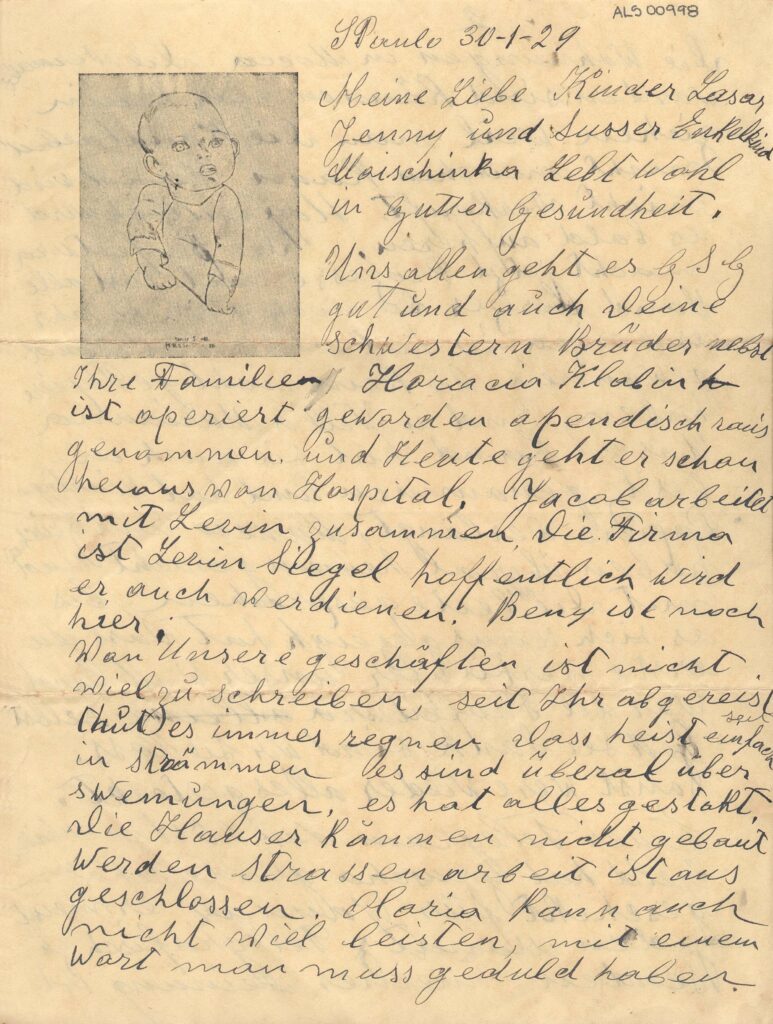 ALS 00998
S Paulo 30-1-29
Meine Liebe Kinder Lasar,
Jenny und Susser Enkelkind
Moischinka Lebt Wohl
in Gutter Gesundheit.
Uns allen geht es G S G
gut und auch Deine
schwestern Brüder nebst
Ihre Familien Horacia Klabin
ist operiert geworden apendisch raus
genommen. und Heute geht er schon
heraus von Hospital. Jacob arbeitet
mit Levin zusammen, Die Firma
ist Levin Siegel hoffentlich wird
er auch verdienen. Beny ist noch
hier.
Von Unsere geschäften ist nicht
viel zu schreiben, seit Ihr abgereist
seit
thut es immer regnen, Dass heist einfach
in strömmen es sind überal über
swemungen, es hat alles gestokt.
Die Hauser kännen nicht gebaut
Werden strassen arbeit ist aus
geschlossen. Olaria kann auch
nicht viel leisten, mit einem
Wort man muss geduld haben.